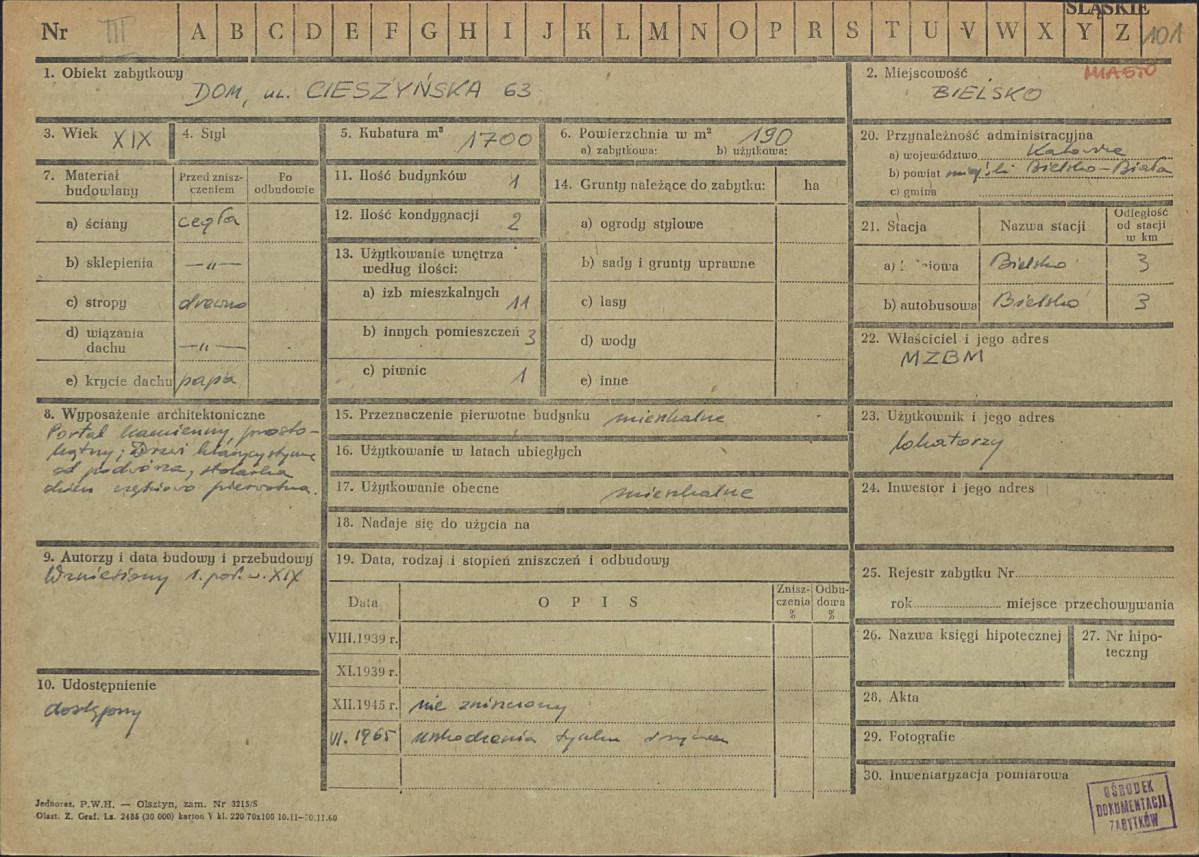 ŚLĄSKIE
Nr III A B C D E F G H I J K L M N O P R S T U V W X Y Z 101
1. Obiekt zabytkowy
DOM, ul. CIESZYŃSKA 63
2. Miejscowość
MIASTO
BIELSKO
3. Wiek XIX
4. Styl
5. Kubatura m³ 1700
6. Powierzchnia w m² 190
a) zabytkowa: b) użytkowa:
7. Materiał budowlany
Przed zniszczeniem
Po odbudowie
a) ściany cegła
b) sklepienia —„—
c) stropy drewno
d) wiązania dachu —„—
e) krycie dachu papa
8. Wyposażenie architektoniczne
Portal kamienny, prosto-
kątny; Drzwi klasycystyczne
od podwórza, stolarka
okien częściowo pierwotna.
9. Autorzy i data budowy i przebudowy
Wzniesiony 1. poł. w. XIX
10. Udostępnienie
dostępny
11. Ilość budynków 1
12. Ilość kondygnacji 2
13. Użytkowanie wnętrza
według ilości:
a) izb mieszkalnych 11
b) innych pomieszczeń 3
c) piwnic 1
14. Grunty należące do zabytku: ha
a) ogrody stylowe
b) sady i grunty uprawne
c) lasy
d) wody
e) inne
15. Przeznaczenie pierwotne budynku mieszkalne
16. Użytkowanie w latach ubiegłych
17. Użytkowanie obecne mieszkalne
18. Nadaje się do użycia na
19. Data, rodzaj i stopień zniszczeń i odbudowy
Data
OPIS
Zniszczenia %
Odbudowa %
VIII.1939 r.
XI.1939 r.
XII.1945 r. nie zniszczony
VI. 1965 uszkodzenia tynku
20. Przynależność administracyjna
a) województwo Katowice
b) powiat miejski Bielsko-Biała
c) gmina
21. Stacja
Nazwa stacji
Odległość od stacji w km
a) Bielsko 3
b) autobusowa Bielsko 3
22. Właściciel i jego adres
MZBM
23. Użytkownik i jego adres
lokatorzy
24. Inwestor i jego adres
25. Rejestr zabytku Nr
rok miejsce przechowywania
26. Nazwa księgi hipotecznej
27. Nr hipoteczny
28. Akta
29. Fotografie
30. Inwentaryzacja pomiarowa
OŚRODEK
DOKUMENTACJI
ZABYTKÓW
Jednoraz. P.W.H. — Olsztyn, zam. Nr 3215/S
Olszt. Z. Graf. Lz. 2485 (30 000) karton V kl. 220 70x100 10.11—30.11.60